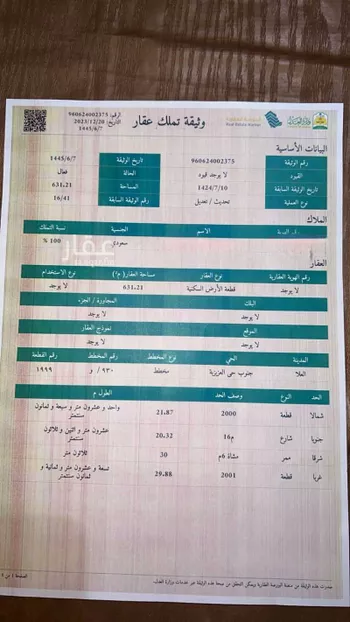 وثيقة تملك عقار
الرقم: 960624002375
التاريخ: 2023/12/20
1445/6/7
البيانات الأساسية
رقم الوثيقة 960624002375 تاريخ الوثيقة 1445/6/7
القيود لا يوجد قيود الحالة فعال
تاريخ الوثيقة السابقة 1424/7/10 المساحة 631.21
نوع العملية تحديث / تعديل رقم الوثيقة السابقة 16/41
الملاك
الاسم الجنسية نسبة التملك
سعودي 100 %
عقار
العقار
رقم الهوية العقارية نوع العقار مساحة العقار( م٢) نوع الاستخدام
لا يوجد قطعة الأرض السكنية 631.21 لا يوجد
البلك المجاورة / الجزء
لا يوجد لا يوجد
الموقع نموذج العقار
لا يوجد لا يوجد
المدينة الحي نوع المخطط رقم المخطط رقم القطعة
العلا جنوب حي العزيزية مخطط ٩٣٠ / و ١٩٩٩
الحد النوع وصف الحد الطول م
شمالا قطعة 2000 21.87 واحد و عشرون متر و سبعة و ثمانون سنتمتر
جنوبا شارع م16 20.32 عشرون متر و اثنين و ثلاثون سنتمتر
شرقا ممر مشاة 6م 30 ثلاثون متر
غربا قطعة 2001 29.88 تسعة و عشرون متر و ثمانية و ثمانون سنتمتر
صدرت هذه الوثيقة من منصة البورصة العقارية ويمكن التحقق من صحة هذه الوثيقة عبر خدمات وزارة العدل.